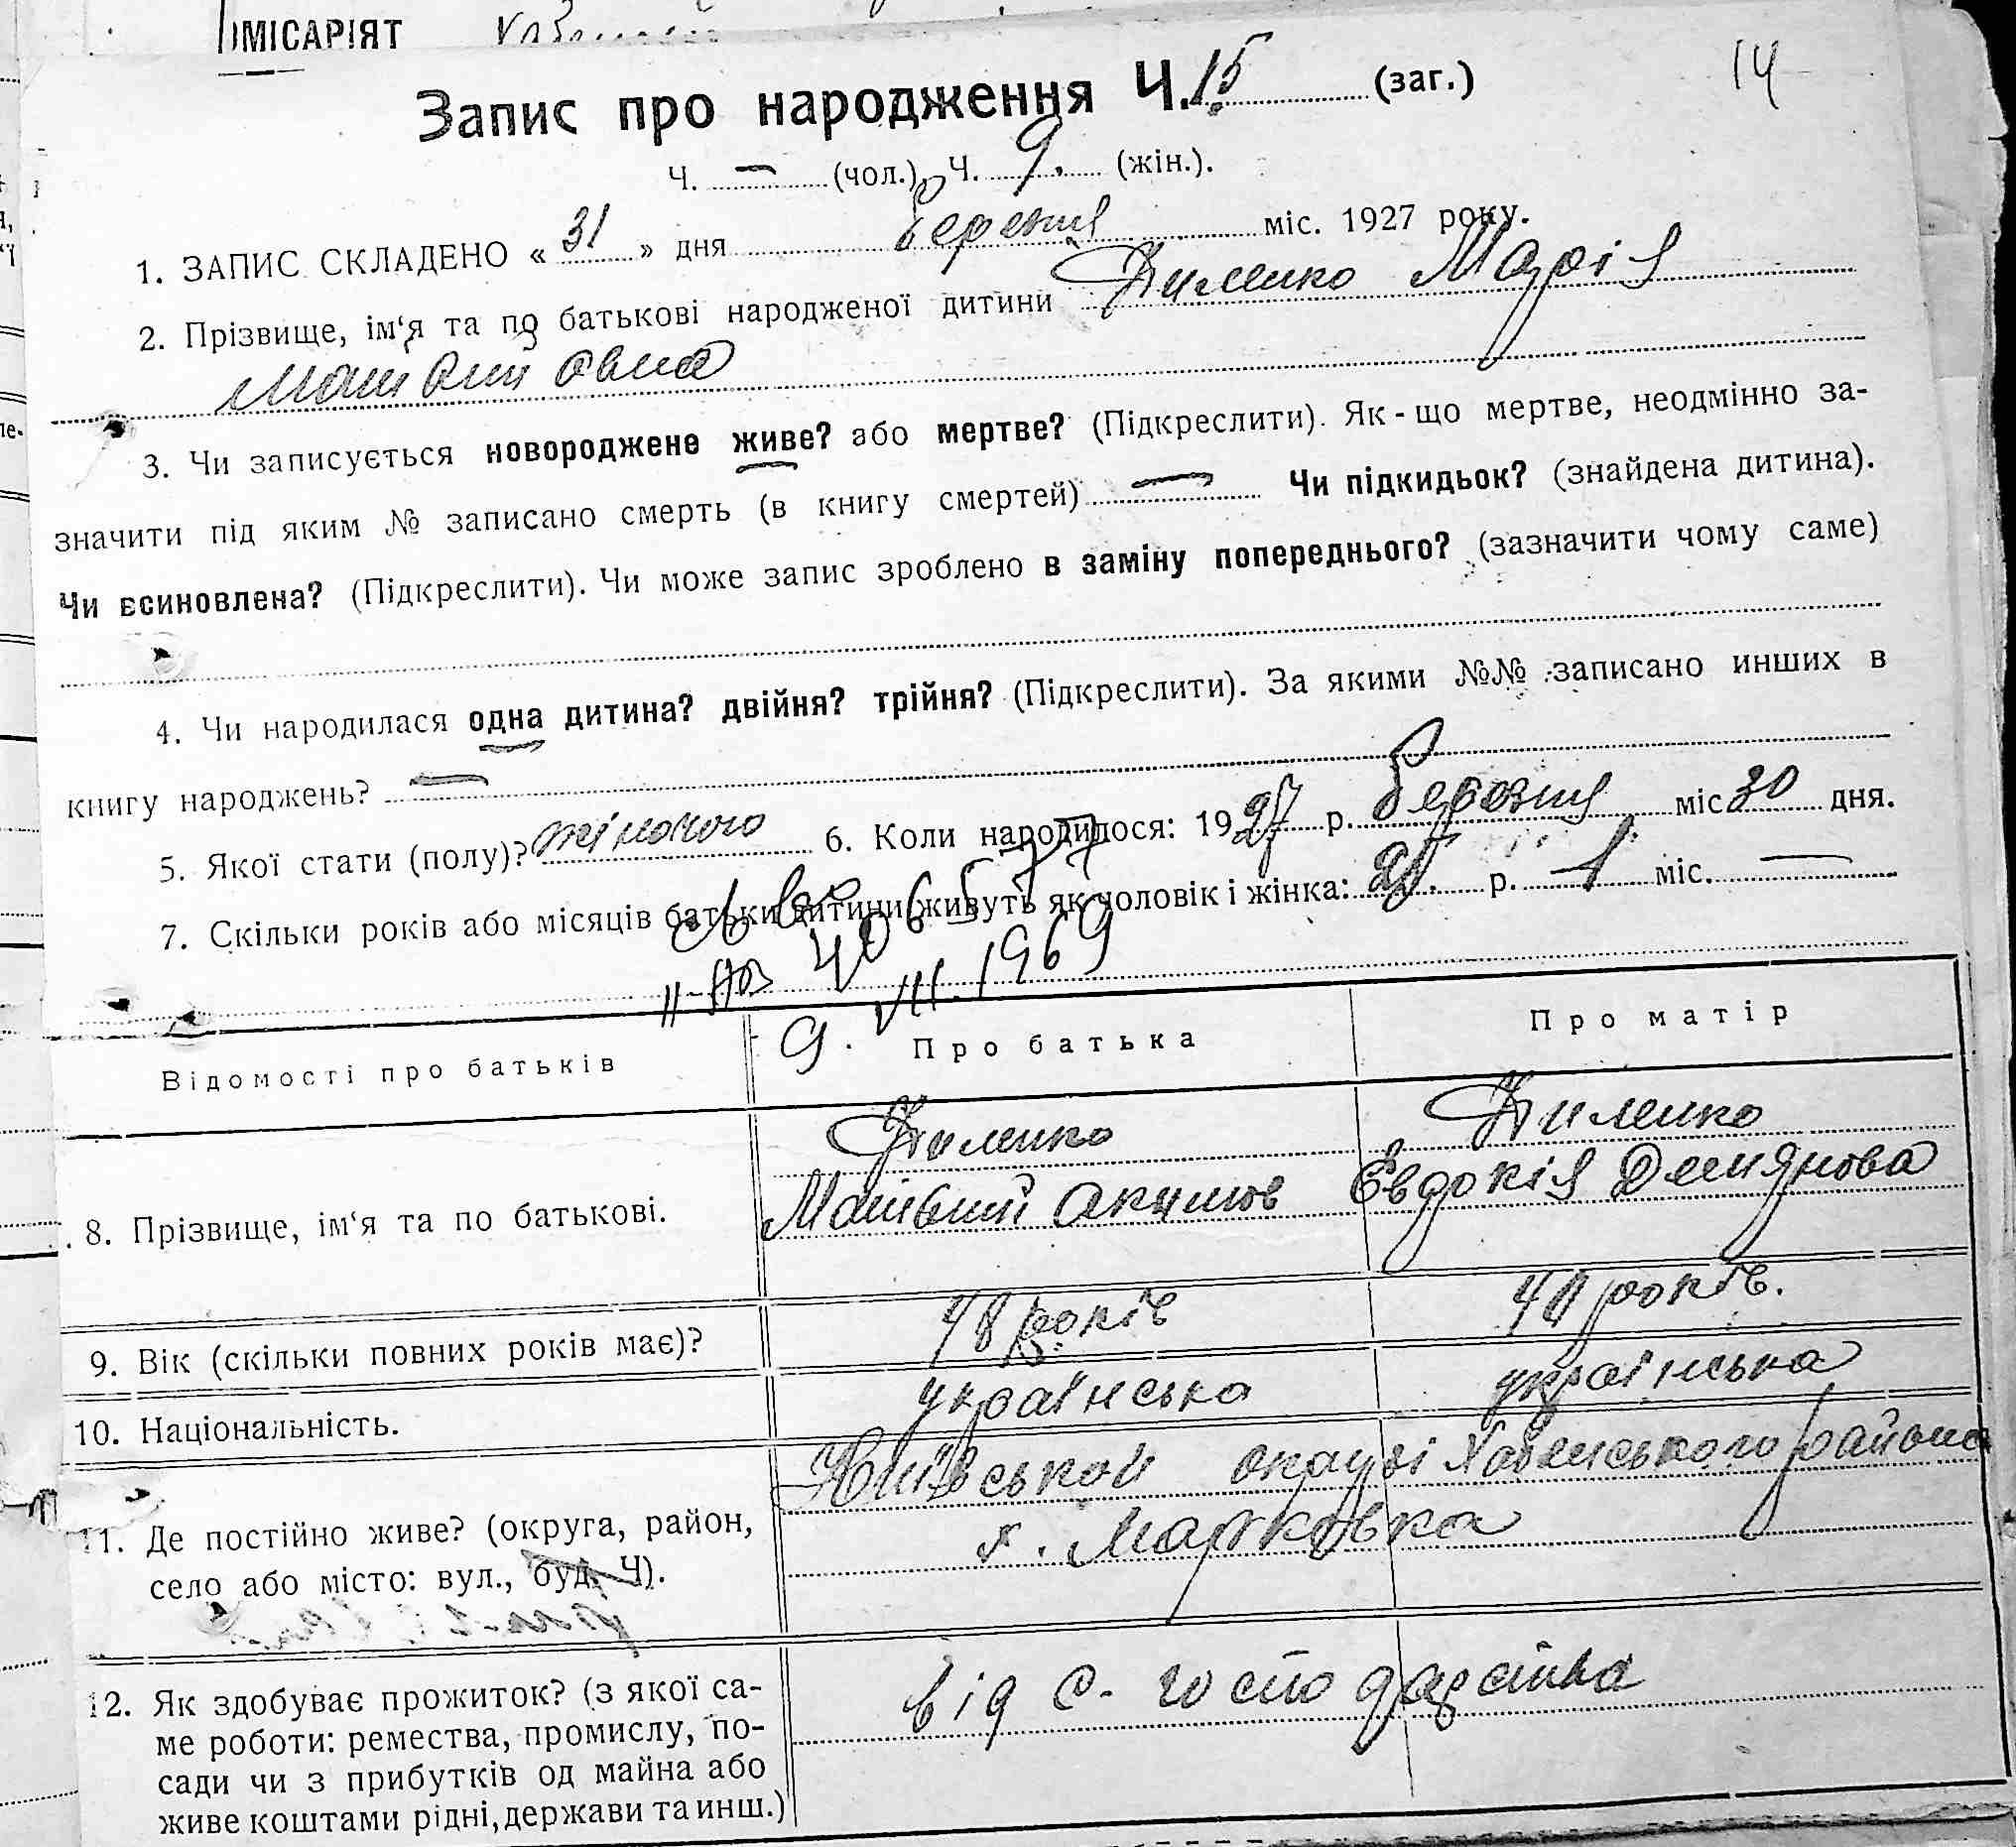 ОМІСАРІЯТ
14
Запис про народження Ч. 15 (заг.)
Ч. — (чол.), Ч. 9. (жін.).
1. ЗАПИС СКЛАДЕНО « 31 » дня березня міс. 1927 року.
2. Прізвище, ім‘я та по батькові народженої дитини Дименко Марія
Матвіивовна
3. Чи записується новороджене живе? або мертве? (Підкреслити). Як-що мертве, неодмінно за-
значити під яким № записано смерть (в книгу смертей) — Чи підкидьок? (знайдена дитина).
Чи всиновлена? (Підкреслити). Чи може запис зроблено в заміну попереднього? (зазначити чому саме)
4. Чи народилася одна дитина? двійня? трійня? (Підкреслити). За якими №№ записано инших в
книгу народжень? —
5. Якої стати (полу)? жіночого 6. Коли народилося: 1927 р. березня міс 30 дня.
7. Скільки років або місяців батьки дитини живуть як чоловік і жінка: р. міс. —
9. VII. 1969
Відомості про батьків Про батька Про матір
Дименко Дименко
8. Прізвище, ім‘я та по батькові. Матвий Акимов Евдокія Демянова
9. Вік (скільки повних років має)? 48 років 40 років.
10. Національність. українська українська
Київськой округі Хабенського района
11. Де постійно живе? (округа, район, х. Марковка
село або місто: вул., буд. Ч).
12. Як здобуває прожиток? (з якої са- від с. господарства
ме роботи: ремества, промислу, по-
сади чи з прибутків од майна або
живе коштами рідні, держави та инш.)